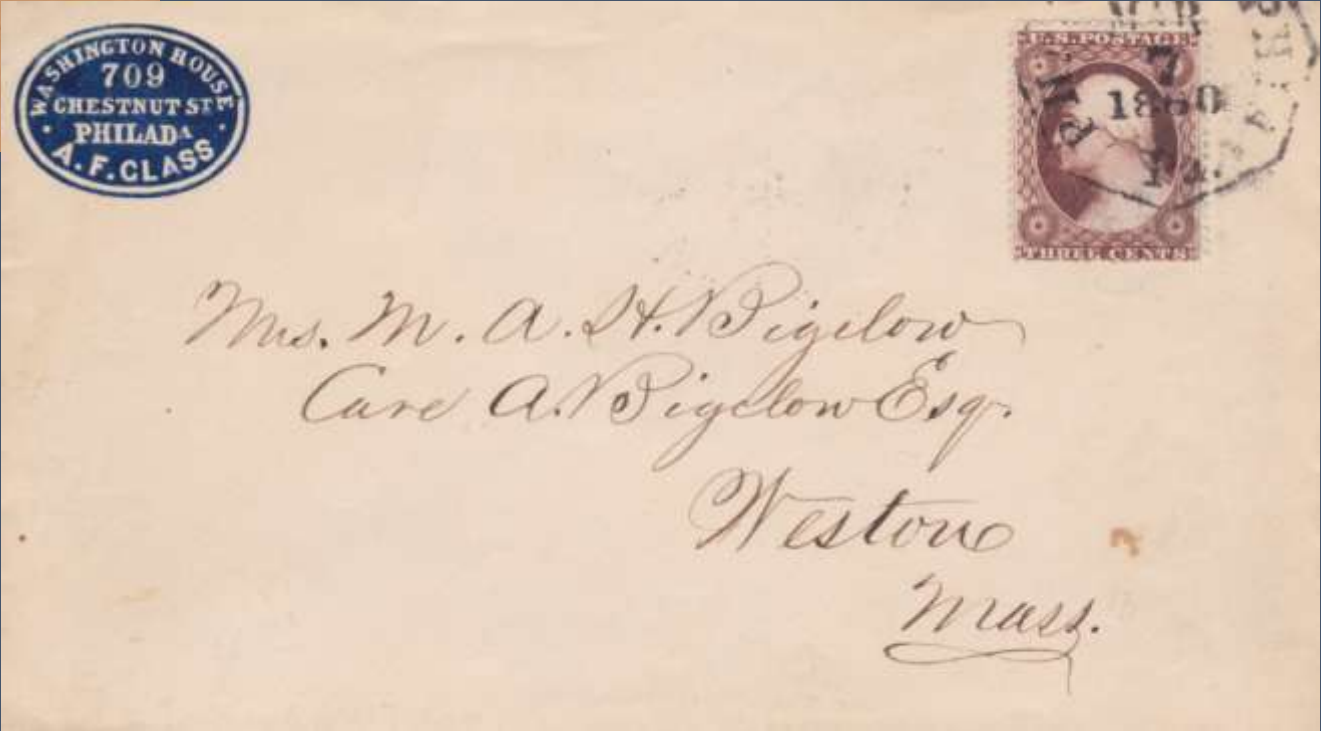 WASHINGTON HOUSE
709
CHESTNUT ST
PHILADA
A. F. GLASS
U.S. POSTAGE
7
1860
Pa.
THREE CENTS
Mrs. M. A. H. Bigelow
Care A. Bigelow Esq.
Weston
Mass.